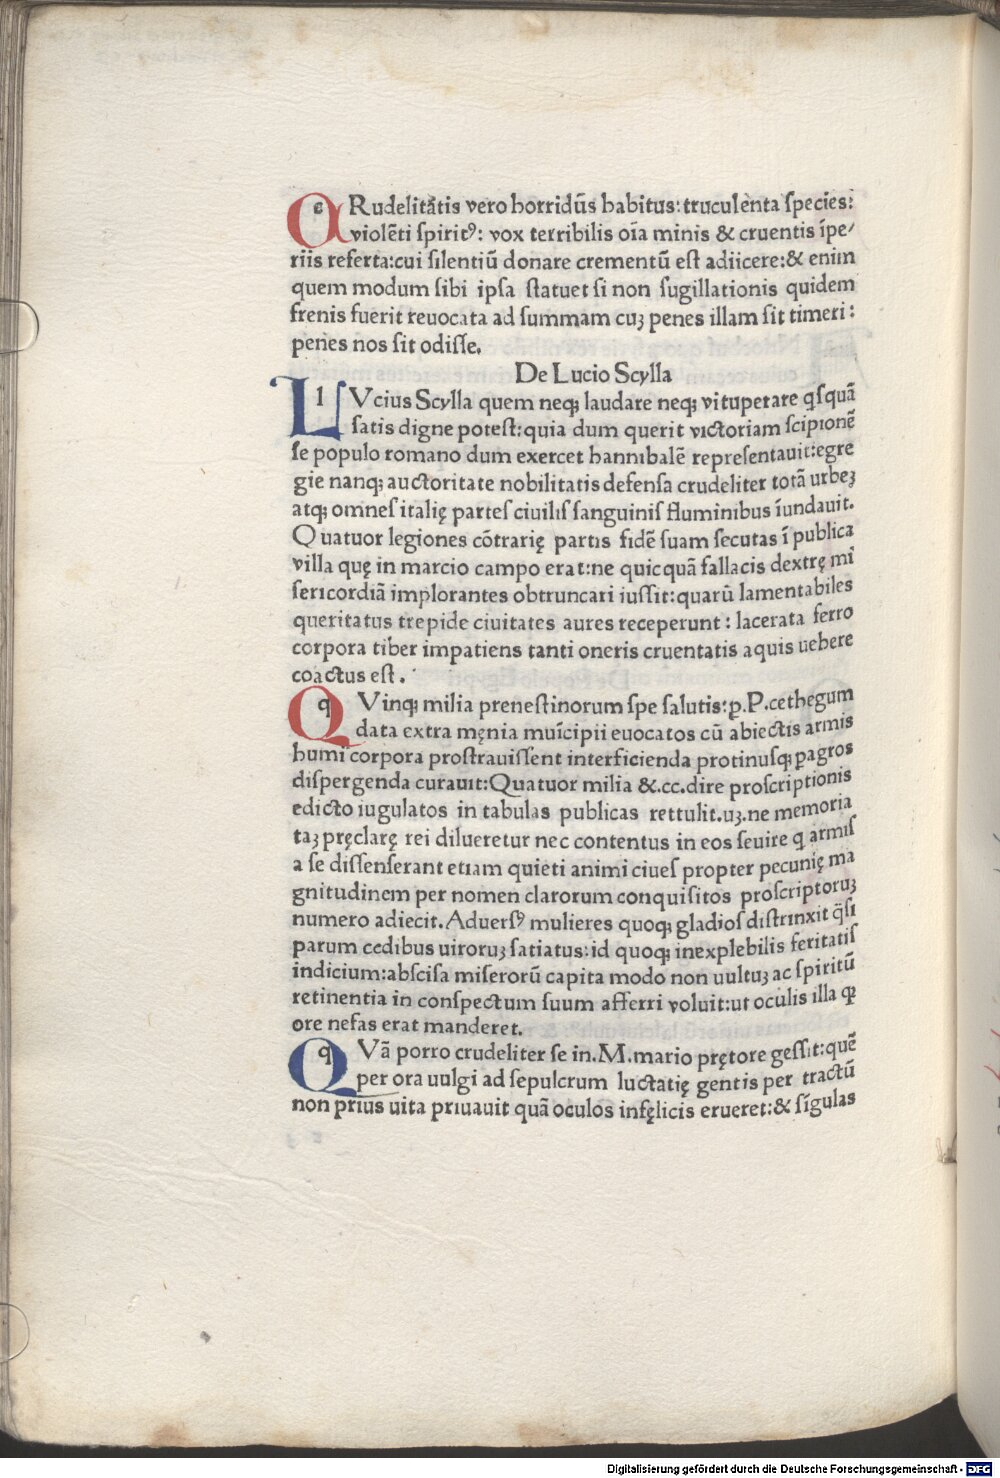 CRudelitātis vero horridūs habitus: truculenta ſpecies:
violēti ſpiritꝰ: vox terribilis oīa minis & cruentis īpe/
riis referta:cui ſilentiū donare crementū eſt adiicere:& enim
quem modum ſibi ipſa ſtatuet ſi non ſugillationis quidem
frenis fuerit reuocata ad ſummam cuꝫ penes illam ſit timeri:
penes nos ſit odiſſe.
De Lucio Scylla
LVcius Scylla quem neqꝫ laudare neqꝫ vituperare qſquā
ſatis digne poteſt:quia dum querit victoriam ſcipionē
ſe populo romano dum exercet hannibalē repreſentauit:egre
gie nanqꝫ auctoritate nobilitatis defenſa crudeliter totā urbeꝫ
atqꝫ omneſ italię parteſ ciuiliſ ſanguiniſ fluminibus īundauit.
Quatuor legiones cōtrarię partis fidē ſuam ſecutas ī publica
villa quę in marcio campo erat:ne quicquā fallacis dextrę mi
ſericordiā implorantes obtruncari iuſſit:quarū lamentabiles
queritatus trepide ciuitates aures receperunt: lacerata ferro
corpora tiber impatiens tanti oneris cruentatis aquis uehere
coactus eſt.
QVinqꝫ milia preneſtinorum ſpe ſalutis:p.P.cethegum
data extra męnia muīcipii euocatos cū abiectis armis
humi corpora proſtrauiſſent interficienda protinuſqꝫ pagros
diſpergenda curauit:Quatuor milia &.cc.dire proſcriptionis
edicto iugulatos in tabulas publicas rettulit.uꝫ.ne memoria
taꝫ pręclarę rei dilueretur nec contentus in eos ſeuire q armiſ
a ſe diſſenſerant etiam quieti animi ciueſ propter pecunię ma
gnitudinem per nomen clarorum conquiſitos proſcriptoruꝫ
numero adiecit.Aduerſꝰ mulieres quoqꝫ gladioſ diſtrinxit q̄ſi
parum cedibus uiroruꝫ ſatiatus:id quoqꝫ inexplebilis feritatiſ
indicium:abſciſa miſerorū capita modo non uultuꝫ ac ſpiritū
retinentia in conſpectum ſuum afferri voluit:ut oculis illa qꝫ
ore nefas erat manderet.
QVā porro crudeliter ſe in.M.mario prętore geſſit:quē
per ora uulgi ad ſepulcrum luctatię gentis per tractū
non prius uita priuauit quā oculos infęlicis erueret:& ſīgulas
Digitalisierung gefördert durch die Deutsche Forschungsgemeinschaft - DFG